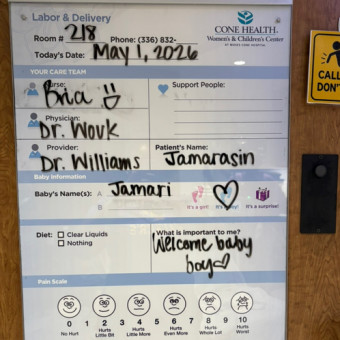 Labor & Delivery
CONE HEALTH
Women's & Children's Center
AT MOSES CONE HOSPITAL
Room # 218 Phone: (336) 832-
Today's Date: May 1, 2026
YOUR CARE TEAM
Nurse: Bria
Support People:
Physician: Dr. Wouk
Provider: Dr. Williams
Patient's Name: Jamarasin
Baby Information
Baby's Name(s): A Jamari
B
It's a girl! It's a boy! It's a surprise!
Diet: Clear Liquids
Nothing
What is important to me?
Welcome baby
boy
Pain Scale
0 1 2 3 4 5 6 7 8 9 10
No Hurt Hurts Little Bit Hurts Little More Hurts Even More Hurts Whole Lot Hurts Worst
CALL
DON'T